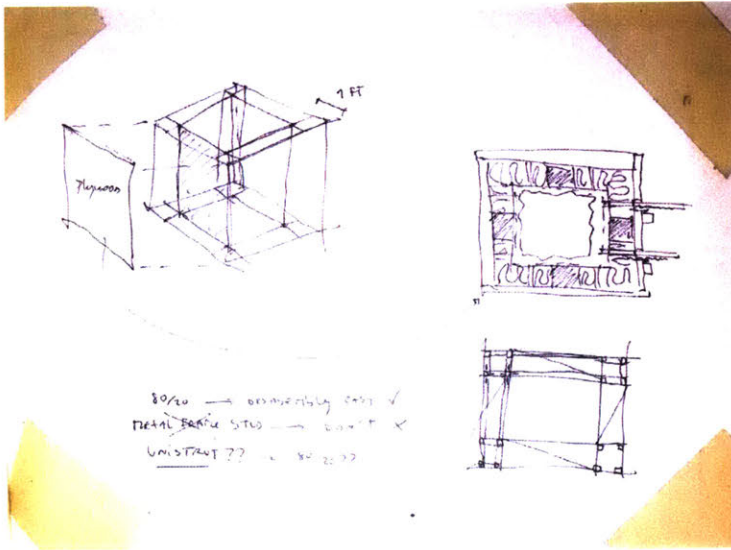 1 FT
Plywood
80/20 → DISASSEMBLY EASY ✓
METAL FRAME STUD → DON'T ✗
UNISTRUT ??